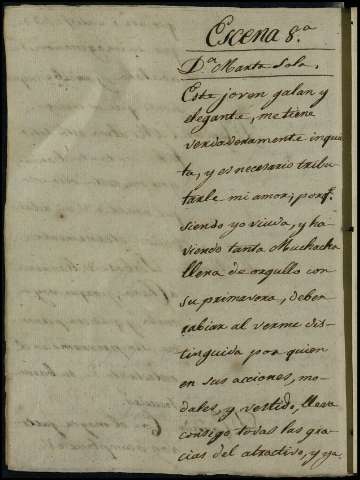 Escena 8.a
D.a Marta Sola.
Este joven galan y
elegante, me tiene
verdaderamente inquie
ta, y es necesario tribu
tarle mi amor; porq.
siendo yo viuda, y ha
viendo tanta Muchacha
llena de orgullo con
su primavera, deben
rabiar al verme dis-
tinguida por quien
en sus acciones, mo-
dales, y vestido, lleva
consigo todas las gra-
cias del atractivo, y